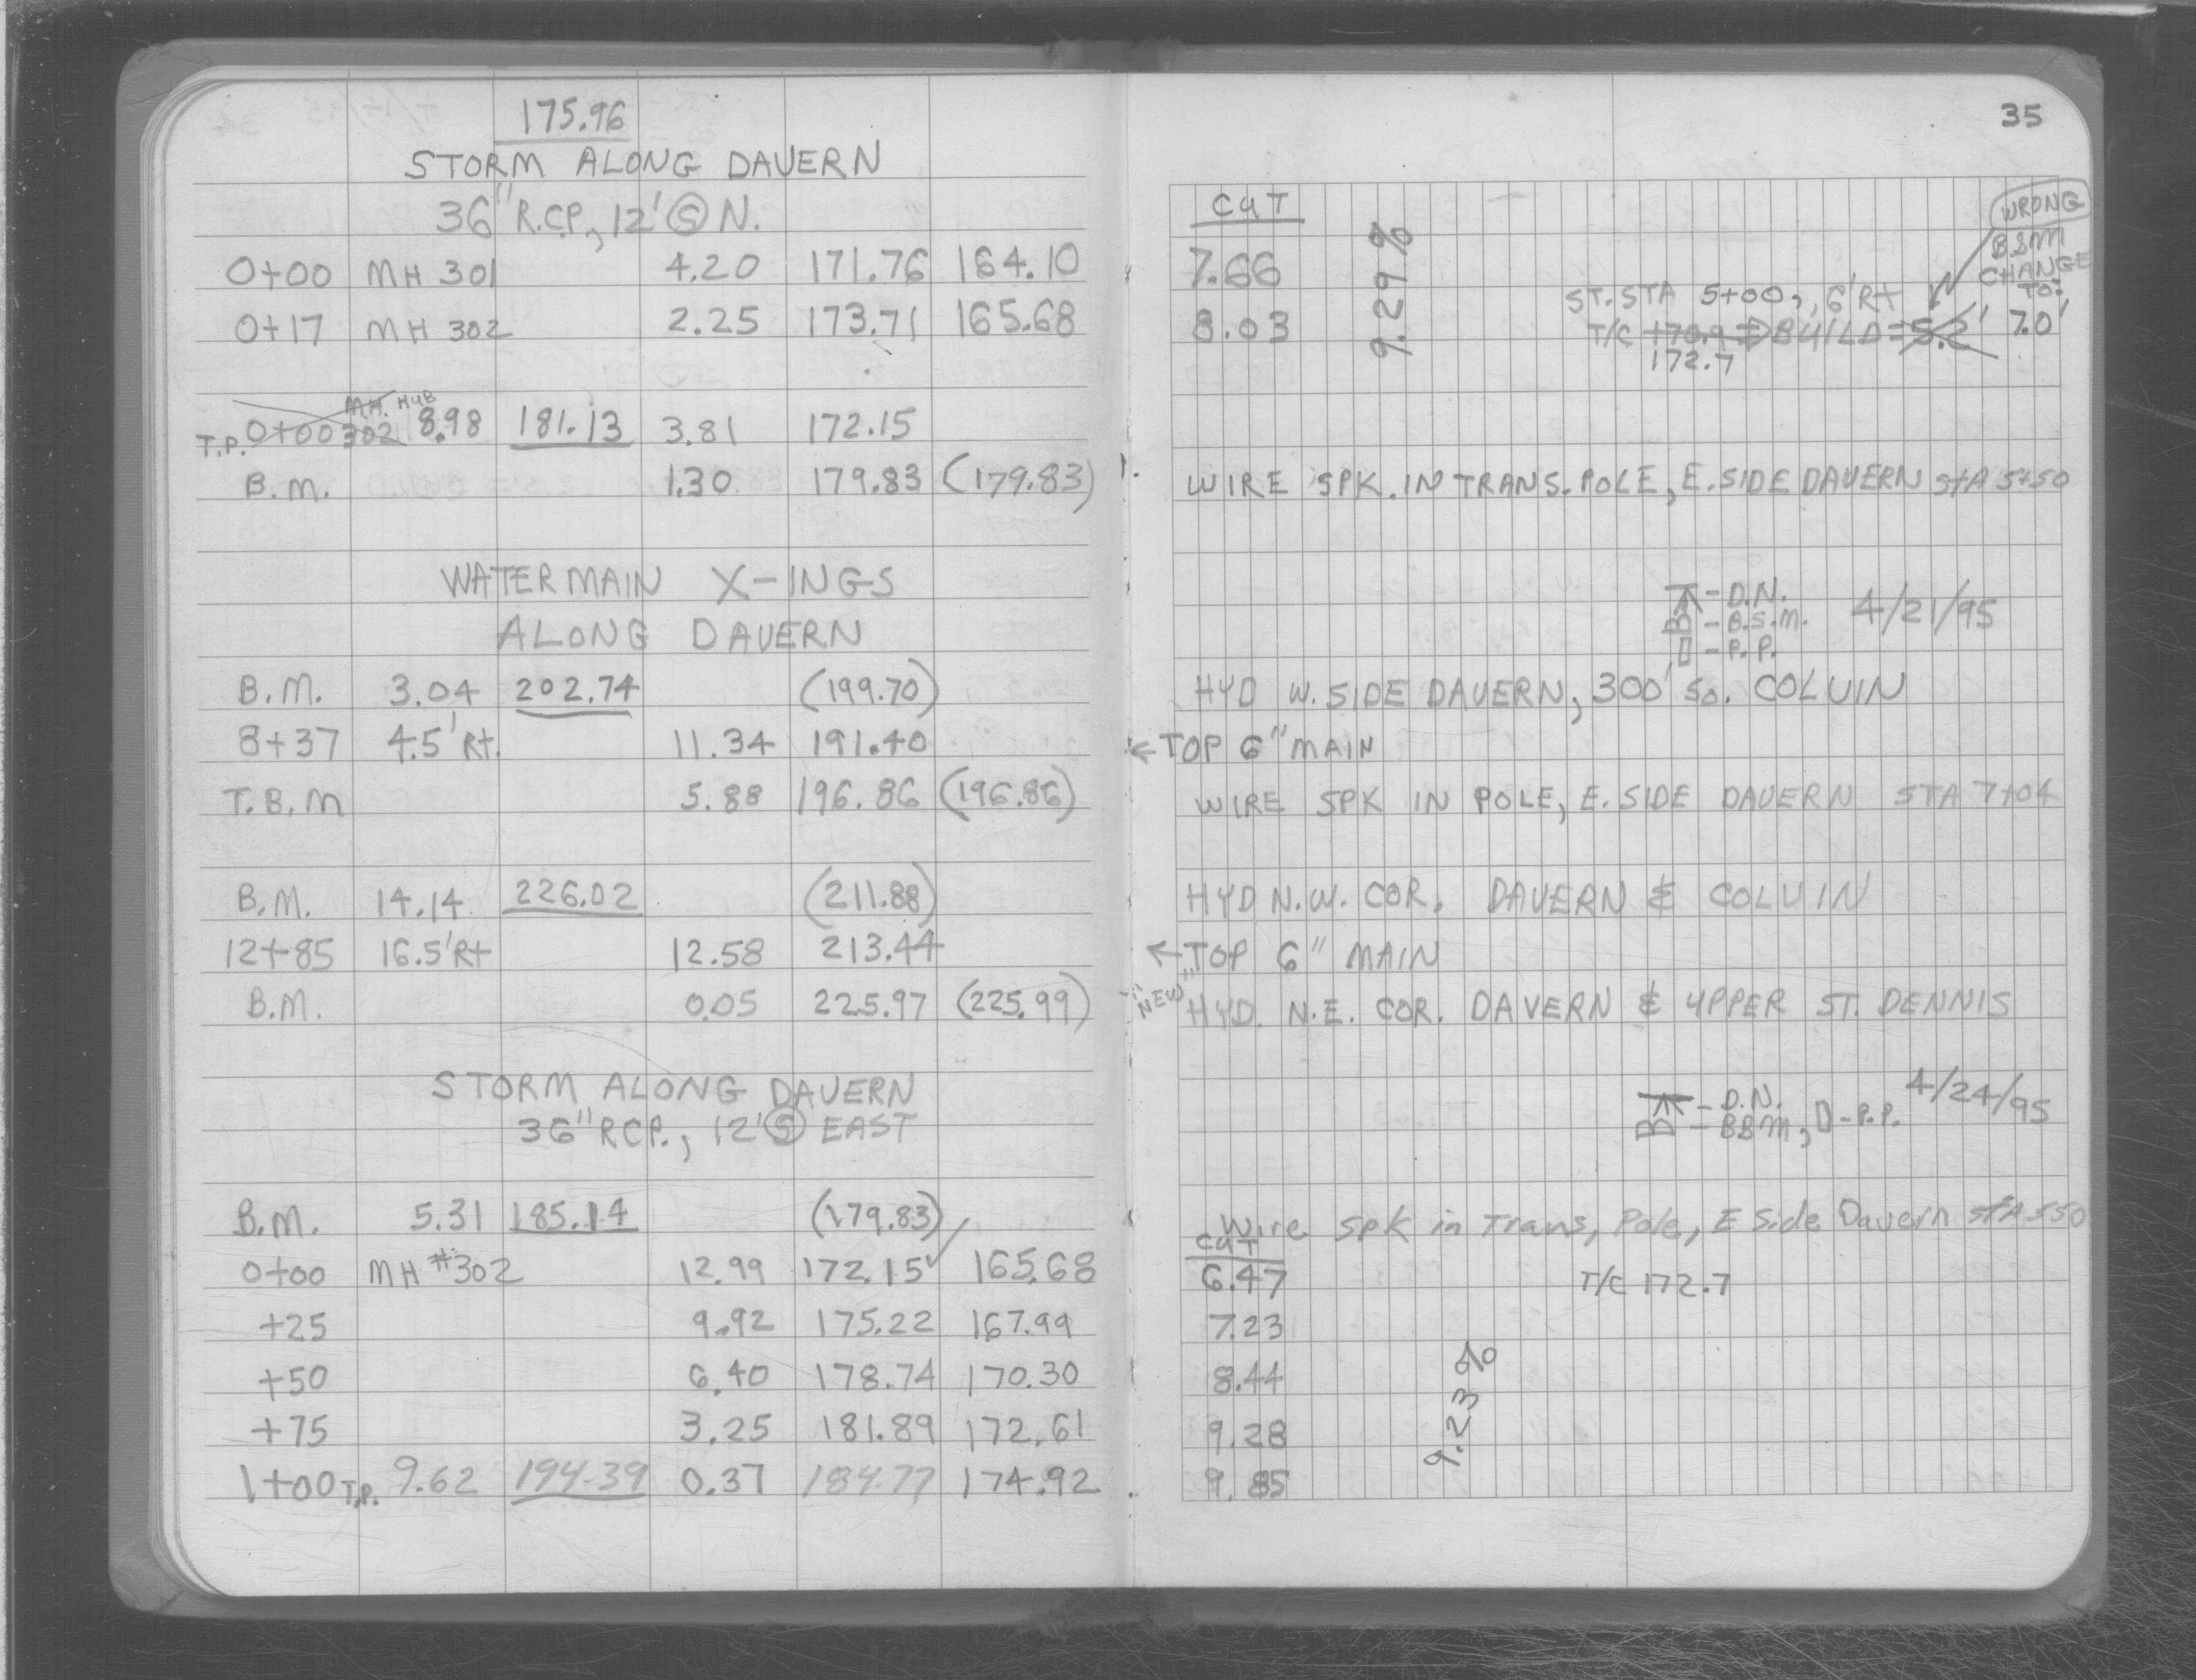 175.96
STORM ALONG DAVERN
36" R.C.P., 12' Ⓢ N.
0+00 MH 301 4.20 171.76 164.10
0+17 MH 302 2.25 173.71 165.68
M.H. HUB
T.P. 0+00 302 8.98 181.13 3.81 172.15
B.M. 1.30 179.83 (179.83)
WATERMAIN X-INGS
ALONG DAVERN
B.M. 3.04 202.74 (199.70)
8+37 4.5' Rt. 11.34 191.40
T.B.M 5.88 196.86 (196.86)
B.M. 14.14 226.02 (211.88)
12+85 16.5' Rt 12.58 213.44
B.M. 0.05 225.97 (225.99)
STORM ALONG DAVERN
36" RCP., 12' Ⓢ EAST
B.M. 5.31 185.14 (179.83)
0+00 MH #302 12.99 172.15 ✓ 165.68
+25 9.92 175.22 167.99
+50 6.40 178.74 170.30
+75 3.25 181.89 172.61
1+00 T.P. 9.62 194.39 0.37 184.77 174.92
35
CUT
WRONG
B.S.M
CHANGE
TO:
7.66
9.29%
ST. STA 5+00, 6' Rt
8.03
T/C 170.9 ⇒ BUILD = 5.2' 7.0'
172.7
WIRE SPK. IN TRANS. POLE, E. SIDE DAVERN STA 5+50
- D.N.
- B.S.M. 4/21/95
- P.P.
HYD W. SIDE DAVERN, 300' So. COLVIN
← TOP 6" MAIN
WIRE SPK IN POLE, E. SIDE DAVERN STA 7+04
HYD N.W. COR. DAVERN & COLVIN
← TOP 6" MAIN
"NEW" HYD. N.E. COR. DAVERN & UPPER ST. DENNIS
- D.N. 4/24/95
- BSM, - P.P.
Wire Spk in Trans, Pole, E Side Davern StA 550
CUT
6.47 T/C 172.7
7.23
8.44
9.23%
9.28
9.85